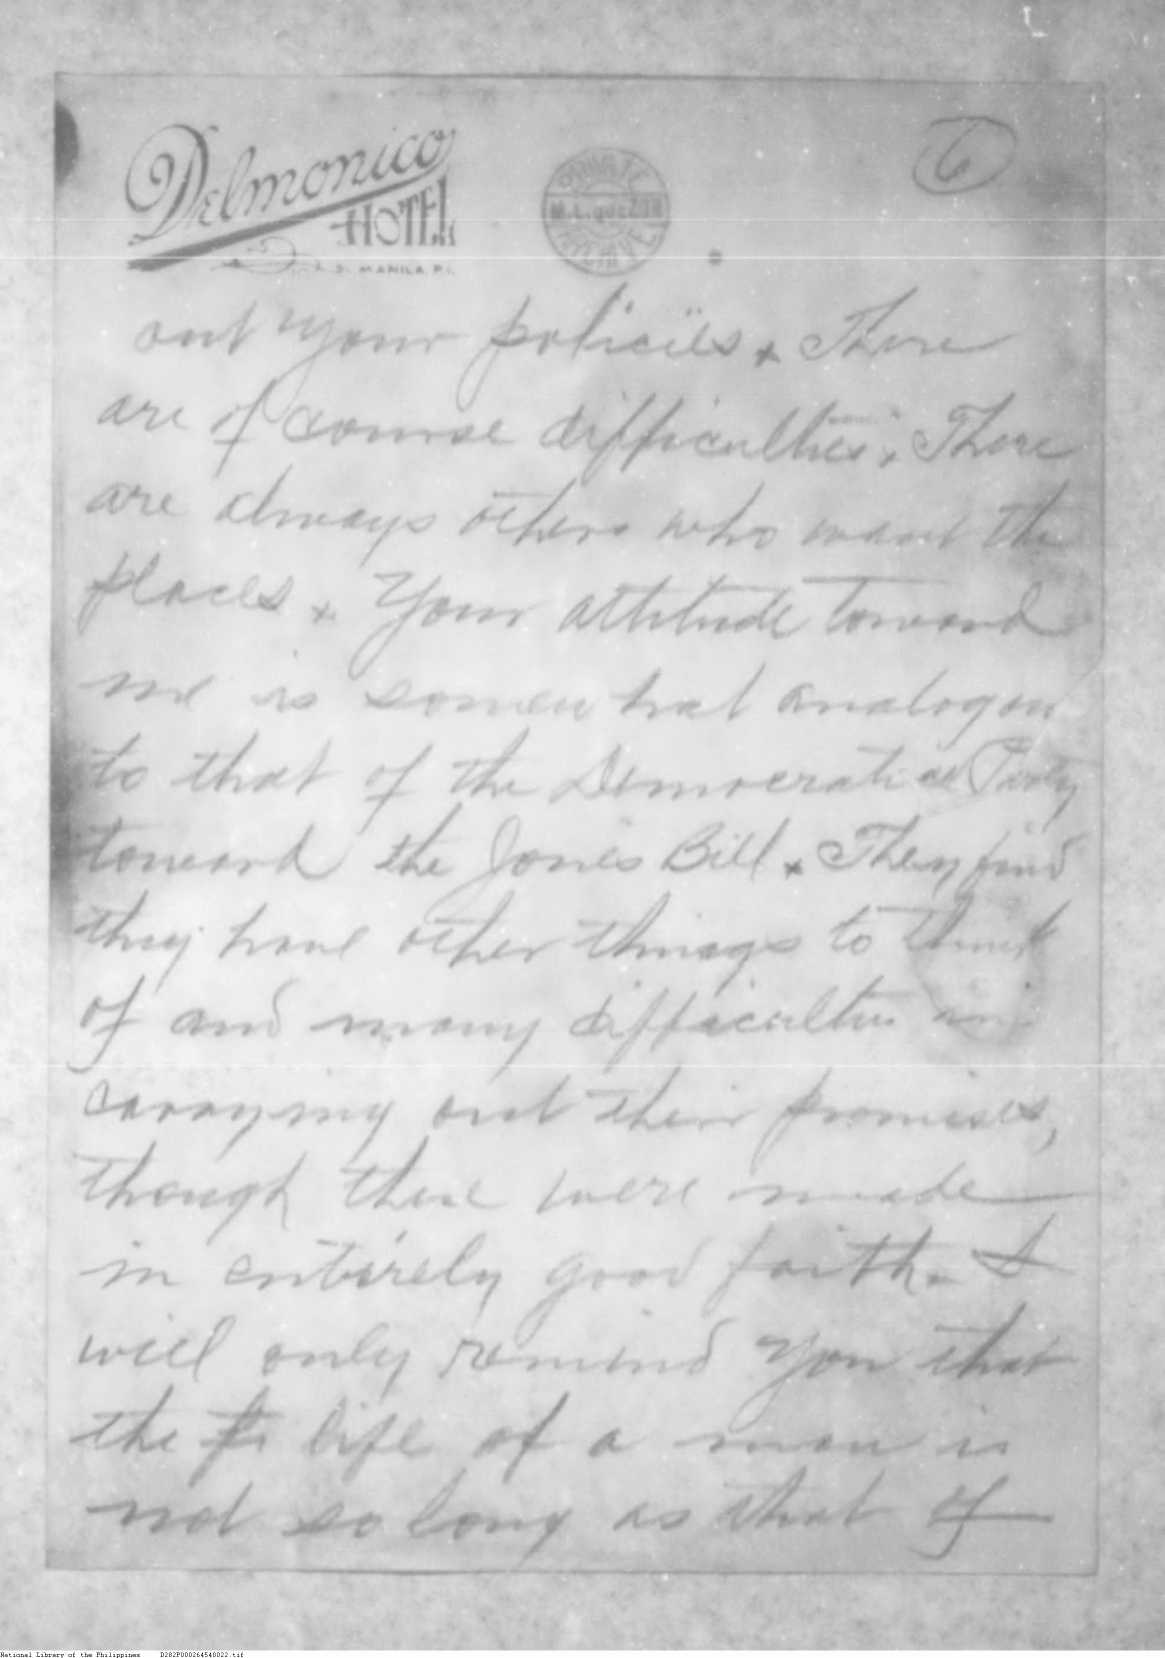 Delmonico
HOTEL
MANILA, P.I.
PRIVATE
M.L. QUEZON
ARCHIVE
6
out your policies. There
are of course difficulties. There
are always others who want the
places. Your attitude toward
me is somewhat analogous
to that of the Democratic Party
toward the Jones Bill. They find
they have other things to think
of and many difficulties in
carrying out their promises,
though these were made
in entirely good faith. I
will only remind you that
the life of a man is
not so long as that of
National Library of the Philippines D282P000264540022.tif